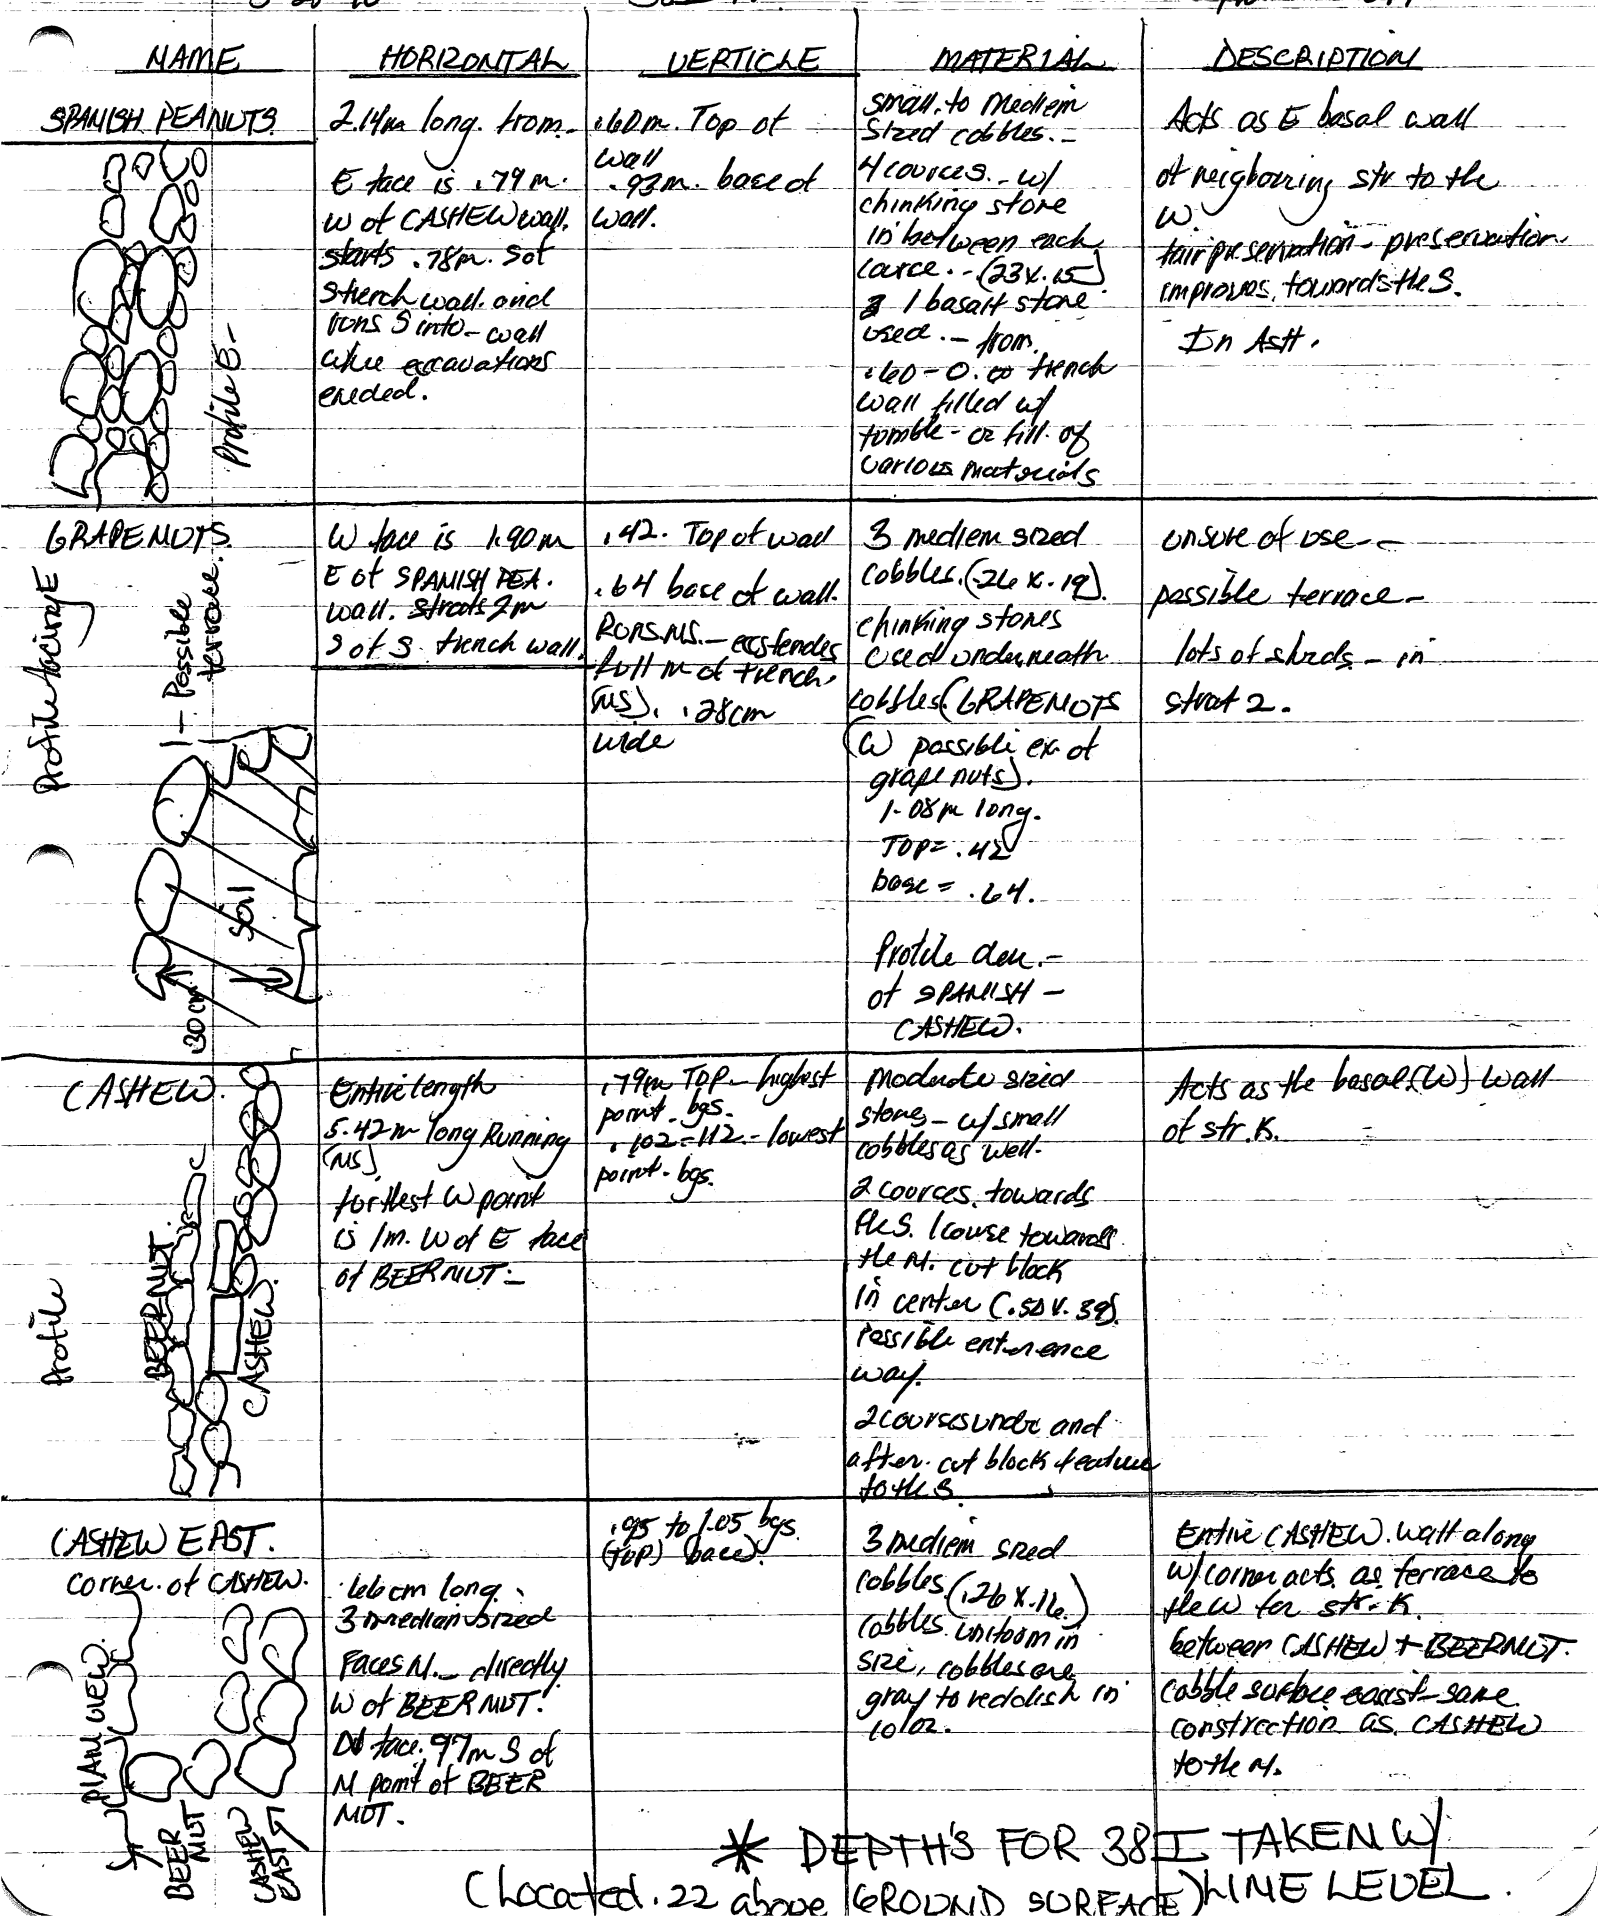 NAME HORIZONTAL VERTICLE MATERIAL DESCRIPTION
SPANISH PEANUTS.
Profile E-
2.14m long. from
E face is .79 m.
W of CASHEW wall.
starts .78m. S of
trench wall. and
runs S into - wall
excavations
ended.
.60m. Top of
wall
.93m. base of
wall.
small. to mediem
sized cobbles. -
4 cources. - w/
chinking stone
in between each
cource. - (23 x .15)
1 basalt stone
used. - from
.60 - 0.00 trench
wall filled w/
tumble - or fill. of
various materials
Acts as E basal wall
of neigboring str to the
W.
fair preservation - preservation
improves. towards the S.
In Ash.
GRAPENUTS.
Profile facing E
1 - Possible
terrace.
soil
30 cm
W face is 1.90m
E of SPANISH PEA.
wall. starts 2m
S of S. trench wall.
.42. Top of wall
.64 base of wall.
Runs NS. - exstendes
full m of trench.
(NS). .28cm
wide
3 mediem sized
cobbles. (.26 x .19).
chinking stones
used underneath
cobbles (GRAPENUTS
W possible ex. of
grape nuts).
1.08m long.
TOP = .42
base = .64.
Profile
of SPANISH -
CASHEW.
unsure of use -
possible terrace -
lots of sherds - in
strat 2.
CASHEW.
Profile
BEERNUT.
CASHEW.
Entire length
5.42m long Running
(NS)
furthest W point
is 1m. W of E face
of BEERNUT -
.79m TOP - highest
point. bgs.
.102 - 112. - lowest
point. bgs.
moderate sized
stones - w/ small
cobbles as well.
2 cources. towards
the S. 1 course towards
the N. cut block
in center (.50 x .39).
Possible enterence
way.
2 courses under and
after. cut block feature
to the S.
Acts as the basal (W) wall
of str. K.
CASHEW EAST.
corner. of CASHEW.
PLAN VIEW.
BEER
NUT
CASHEW
EAST
.66cm long.
3 median sized
Faces N. - directly
W of BEERNUT.
face. 97m S of
N point of BEER
NUT.
.95 to 1.05 bgs.
(TOP) (base).
3 mediem sized
cobbles (.26 x .16.)
cobbles. uniform in
size, cobbles are
gray to reddish in
color.
Entire CASHEW. wall along
w/ corner acts. as. terrace to
the W for str. K.
between CASHEW + BEERNUT.
cobble surface exist - same
construction as. CASHEW
to the N.
* DEPTH'S FOR 38I TAKEN W/
(Located .22 above GROUND SURFACE) LINE LEVEL.